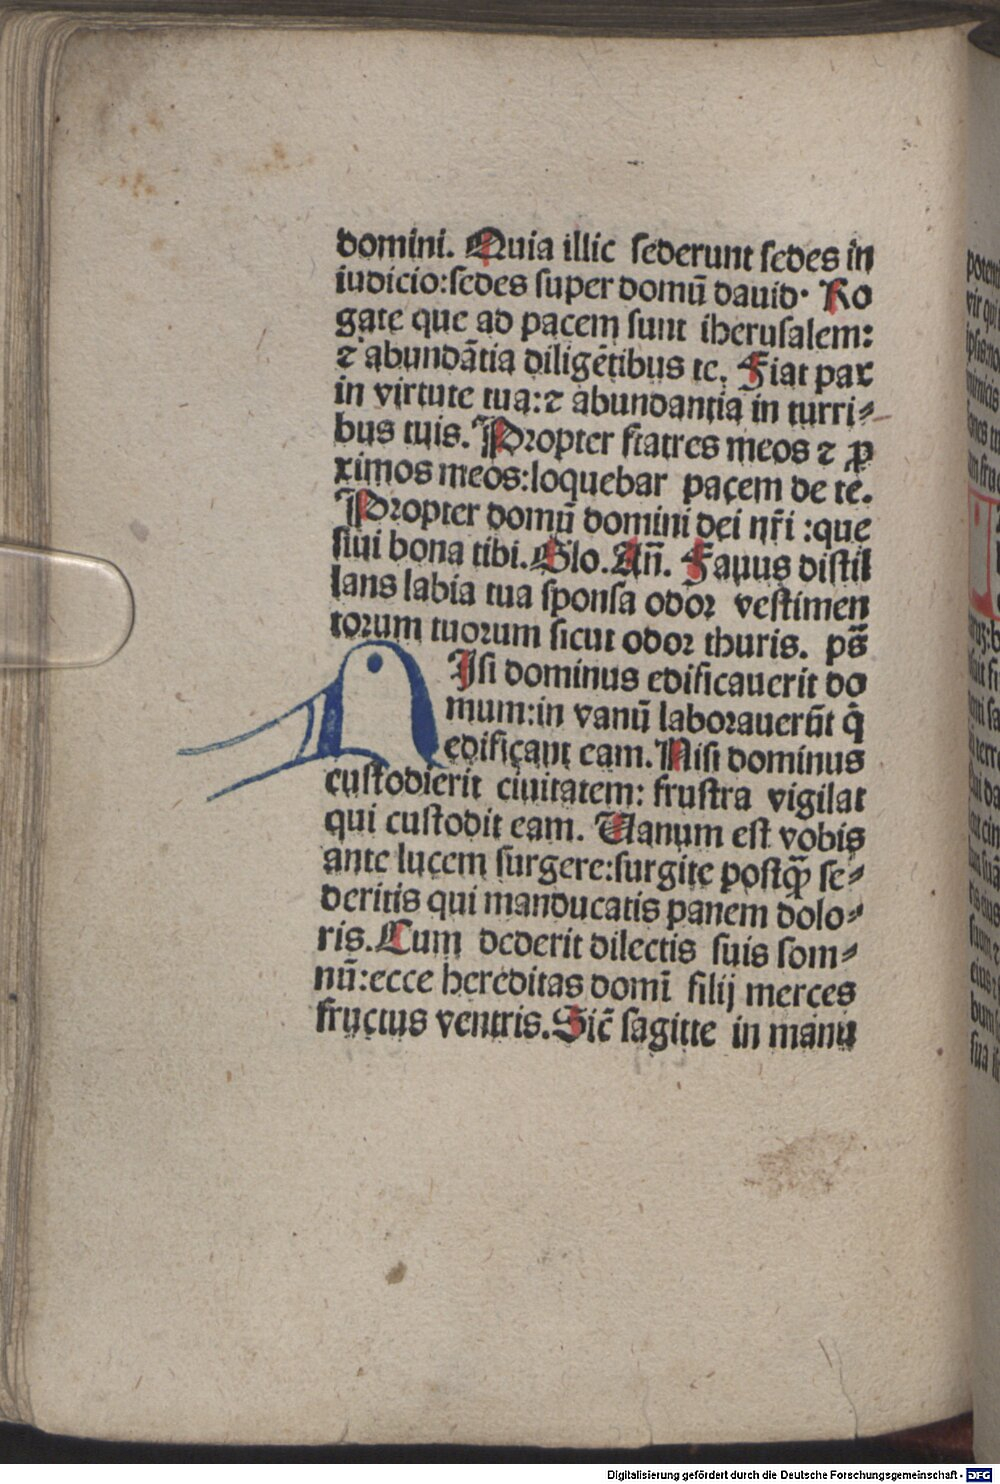 domini. Quia illic sederunt sedes in
iudicio:sedes super domū dauid. Ro
gate que ad pacem sunt iherusalem:
⁊ abundātia diligētibus te. Fiat pax
in virtute tua:⁊ abundantia in turri⸗
bus tuis. Propter fratres meos ⁊ ꝓ
ximos meos:loquebar pacem de te.
Propter domū domini dei nr̄i :que
siui bona tibi. Glo. Añ. Fauus distil
lans labia tua sponsa odor vestimen
torum tuorum sicut odor thuris. ps̄
NIsi dominus edificauerit do
mum:in vanū laborauerūt q̄
edificant eam. Nisi dominus
custodierit ciuitatem: frustra vigilat
qui custodit eam. Vanum est vobis
ante lucem surgere:surgite postꝙ̄ se⸗
deritis qui manducatis panem dolo⸗
ris. Cum dederit dilectis suis som⸗
nū:ecce hereditas domī filij merces
fructus ventris. Sic̄ sagitte in manu
Digitalisierung gefördert durch die Deutsche Forschungsgemeinschaft - DFG